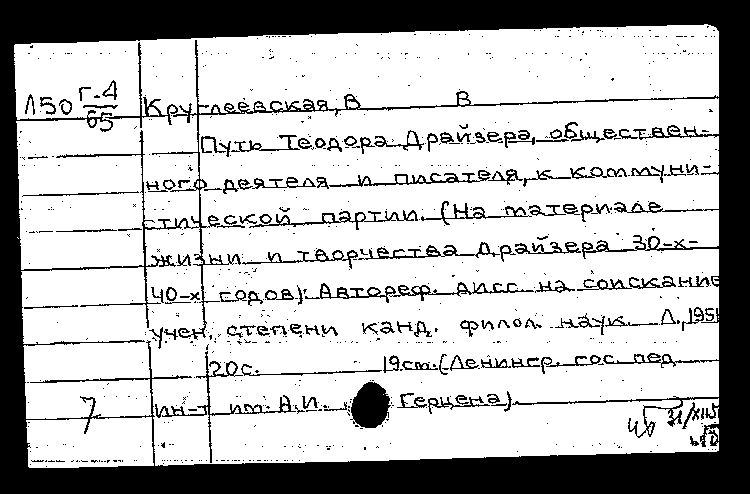 Л50 Г-4/65 Круглеевская, В В
Путь Теодора Драйзера, обществен-
ного деятеля и писателя, к коммуни-
стической партии. (На материале
жизни и творчества Драйзера 30-х-
40-х годов): Автореф. дисс. на соискание
учен. степени канд. филол. наук. Л., 1951
20с. 19см. (Ленингр. гос. пед.
7 ин-т им. А.И. Герцена).
31/XII